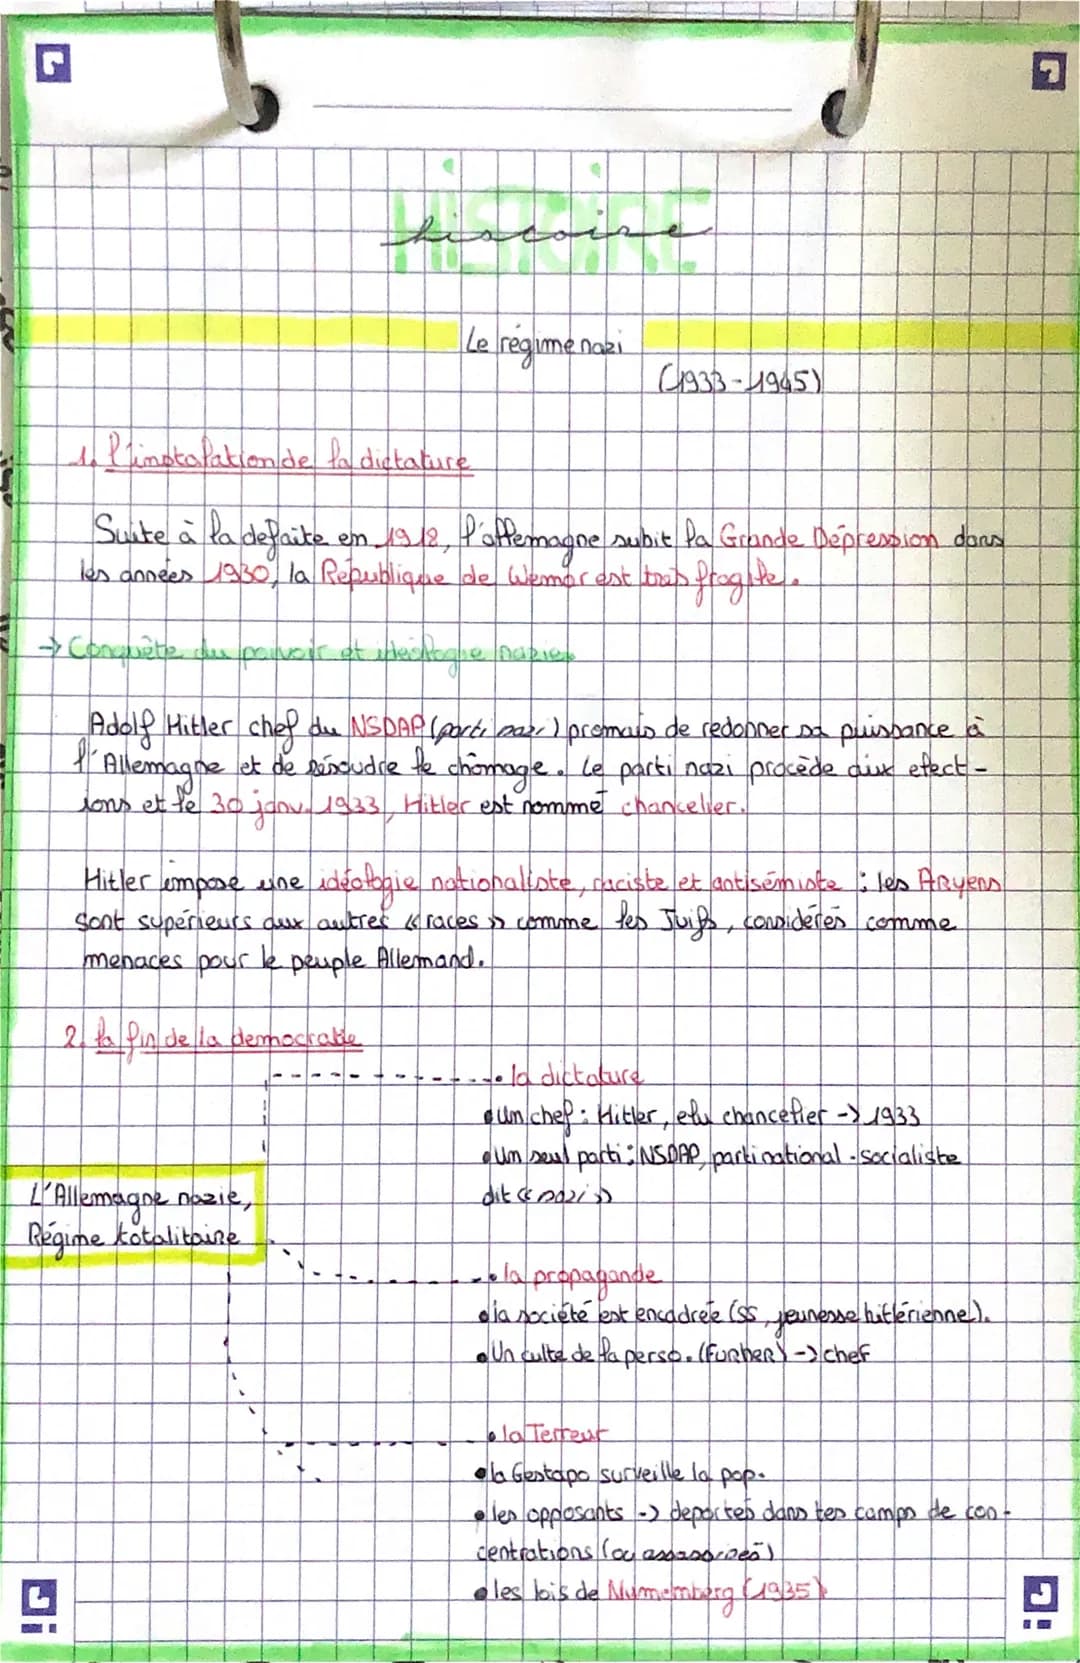 HISTOIRE
histoire
Le régime nazi
(1933-1945)
1. l'installation de la dictature
Suite à la defaite en 1918, l'allemagne subit la Grande Dépression dans
les années 1930, la République de Wemar est très fragile.
→ Conquête du pouvoir et idéologie nazies
Adolf Hitler chef du NSDAP (parti nazi) promais de redonner sa puissance à
l'Allemagne et de résoudre le chômage. Le parti nazi procède aux elect-
ions et le 30 janv. 1933, Hitler est nommé chancelier.
Hitler impose une idéologie nationaliste, raciste et antisémiste : les Aryens
sont supérieurs aux autres « races » comme les Juifs, considérés comme
menaces pour le peuple Allemand.
2. la fin de la democratie
• la dictature
• Un chef : Hitler, elu chancelier -> 1933
• Un seul parti : NSDAP, parti national-socialiste
dit « nazi »
L'Allemagne nazie,
Régime totalitaire
• la propagande
• la société est encadrée (SS, jeunesse hitlérienne).
• Un culte de la perso. (Furher) -> chef
• la Terreur
• la Gestapo surveille la pop.
• les opposants -> deportés dans les camps de con-
centrations (ou assassinés)
• les lois de Nuremberg (1935)